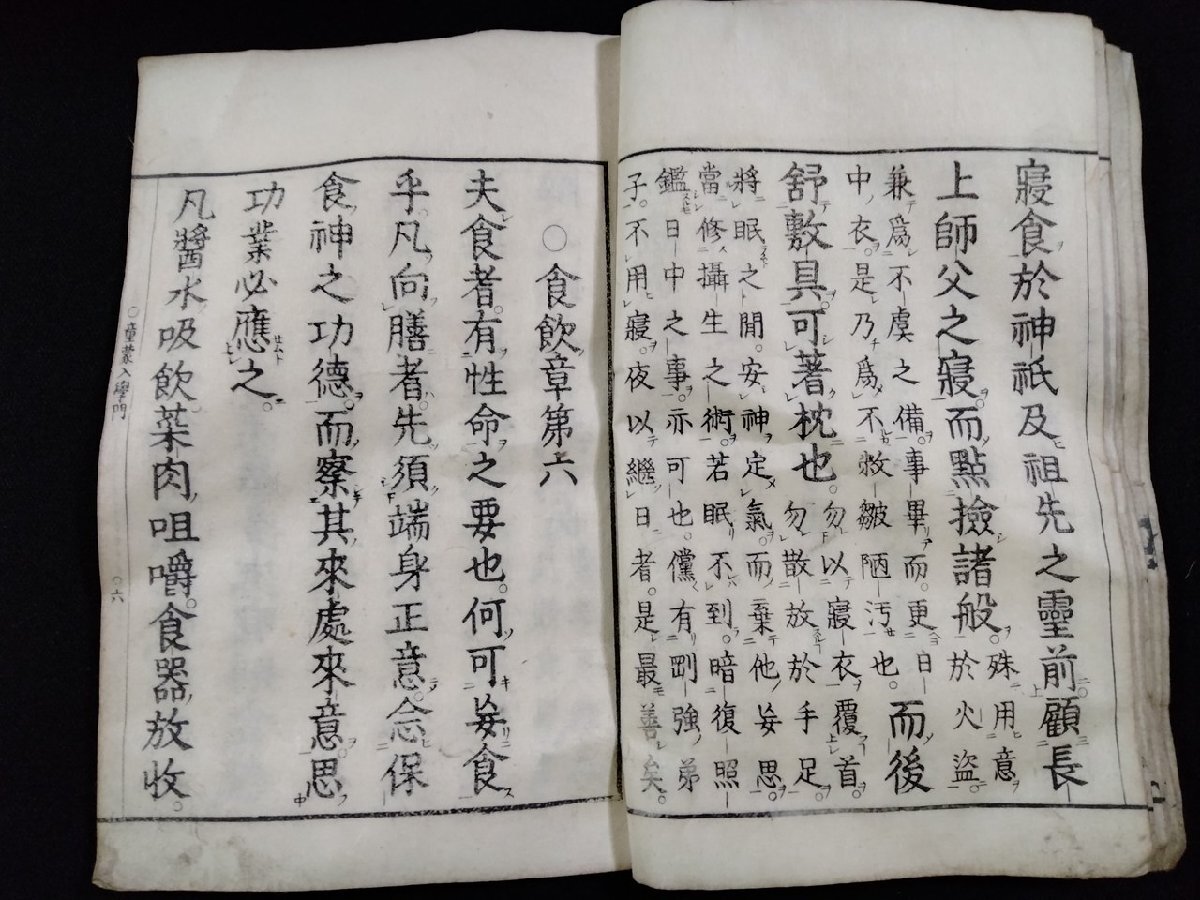 寢食於神祇及祖先之靈前顧長
上師父之寢而點撿諸般。
殊用意
於火盜
兼爲不虞之備。事畢而。更日
中衣。是乃爲不皺陋汚也。
而後
舒敷具。可著枕也。
勿以寢衣覆首。
勿散放於手足。
將眠之間。安神定氣。而棄他妄思。
當修攝生之術。若眠不到。暗復照
鑑日中之事。亦可也。儻有剛強弟
子。不用寢。夜以繼日者。是最善矣。
○食飲章第六
夫食者。有性命之要也。何可妄食
乎。凡向膳者。先須端身正意。念保
食神之功德。而察其來處來意。思
功業必應之。
凡醬水吸飲。菜肉咀嚼。食器放收。
○童蒙入學門
○六